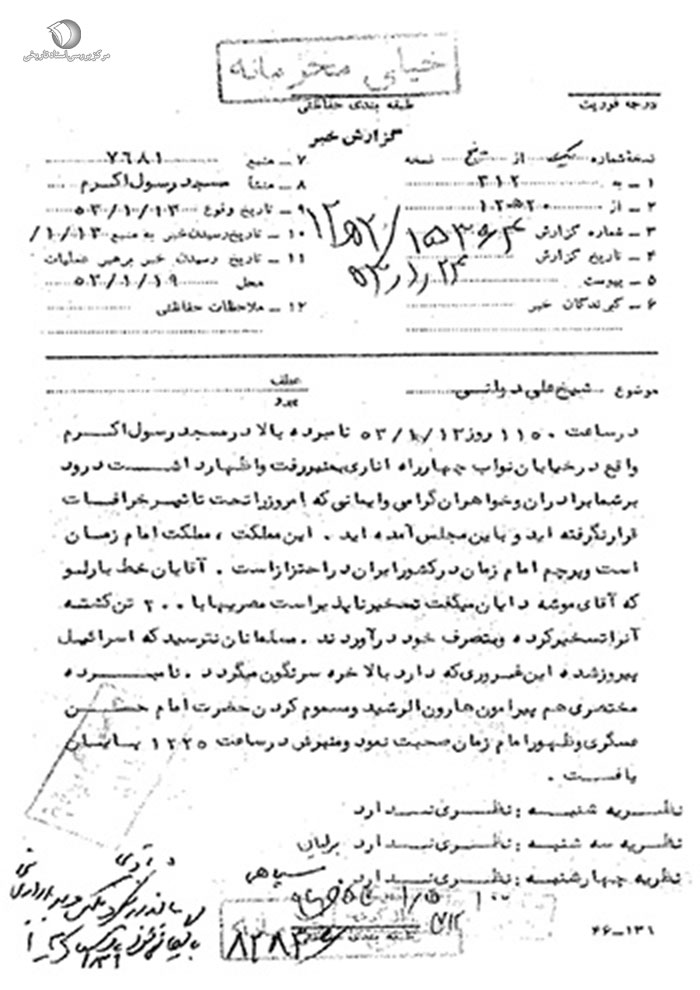 مرکز بررسی اسناد تاریخی
خیلی محرمانه
درجه فوریت
طبقه بندی حفاظتی
گزارش خبر
نسخه شماره یک از پنج نسخه
۱ ـ به ۳۱۲
۲ ـ از ۱۲ه۲۰
۳ ـ شماره گزارش
۴ ـ تاریخ گزارش
۵ ـ پیوست
۶ ـ گیرندگان خبر
۷ ـ منبع ۷۶۸۱
۸ ـ منشأ مسجد رسول اکرم
۹ ـ تاریخ وقوع ۵۳/۱۰/۱۳
۱۰ ـ تاریخ رسیدن خبر به منبع ۱۰/۱۳/
۱۱ ـ تاریخ رسیدن خبر برهبر عملیات
محل ۵۳/۱۰/۱۹
۱۲ ـ ملاحظات حفاظتی
موضوع شیخ علی دوانی
عطف
پیرو
در ساعت ۱۱۵۰ روز ۵۳/۱۰/۱۳ نامبرده بالا در مسجد رسول اکرم
واقع در خیابان نواب چهارراه اناری بمنبر رفت و اظهار داشت درود
بر شما برادران و خواهران گرامی و ایمانی که امروز را تحت تاثیر خرافات
قرار نگرفته اید و باین مجلس آمده اید . این مملکت ، مملکت امام زمان
است و پرچم امام زمان در کشور ایران در احتزاز است . آقایان خط بارلو
که آقای موشه دایان میگفت تسخیر ناپذیر است مصریها با ۲۰۰ تن کشته
آنرا تسخیر کرده و بتصرف خود در آوردند . مسلمانان نترسید که اسرائیل
پیروز شده این غروری که دارد بالاخره سرنگون میگردد . نامبرده
مختصری هم پیرامون هارون الرشید و مسموم کردن حضرت امام حسن
عسگری و ظهور امام زمان صحبت نمود و منبرش در ساعت ۱۲۲۵ پایان
یافت .
نظریه شنبه : نظری ندارد
نظریه سه شنبه : نظری ندارد برلیان
نظریه چهارشنبه : نظری ندارد . سپاهی
طبقه بندی حفاظتی
۸۲۸۳۶
۴۶ـ۱۳۱